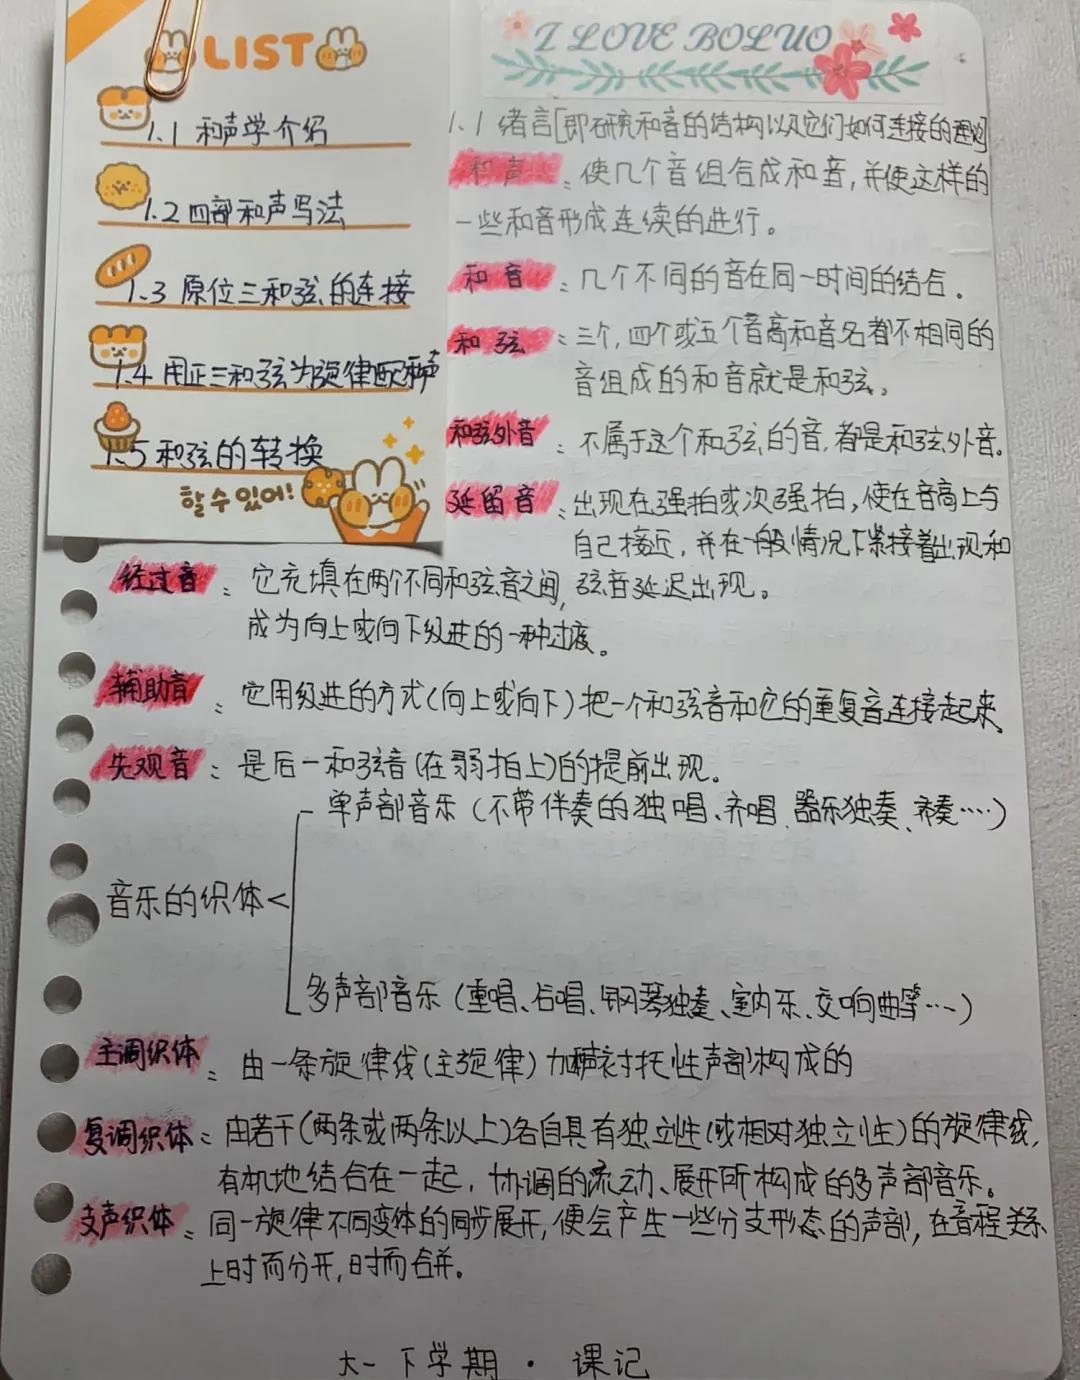 LIST
1.1 和声学介绍
1.2 四部和声写法
1.3 原位三和弦的连接
1.4 用正三和弦为旋律配和声
1.5 和弦的转换
할 수 있어!
I LOVE BOLUO
1.1 绪言[即研究和音的结构以及它们如何连接的理论]
和声：使几个音组合成和音，并使这样的
一些和音形成连续的进行。
和音：几个不同的音在同一时间的结合。
和弦：三个，四个或五个音高和音名都不相同的
音组成的和音就是和弦。
和弦外音：不属于这个和弦的音，都是和弦外音。
延留音：出现在强拍或次强拍，使在音高上与
自己接近，并在一般情况下紧接着出现和
弦音延迟出现。
经过音：它充填在两个不同和弦音之间，
成为向上或向下级进的一种过渡。
辅助音：它用级进的方式(向上或向下)把一个和弦音和它的重复音连接起来。
先观音：是后一和弦音(在弱拍上)的提前出现。
单声部音乐（不带伴奏的独唱、齐唱、器乐独奏、齐奏……）
音乐的织体<
多声部音乐（重唱、合唱、钢琴独奏、室内乐、交响曲等……）
主调织体：由一条旋律线(主旋律)加和声衬托性声部构成的
复调织体：由若干(两条或两条以上)各自具有独立性(或相对独立性)的旋律线，
有机地结合在一起，协调的流动、展开所构成的多声部音乐。
支声织体：同一旋律不同变体的同步展开，便会产生一些分支形态的声部，在音程关系
上时而分开，时而合并。
大一下学期·课记